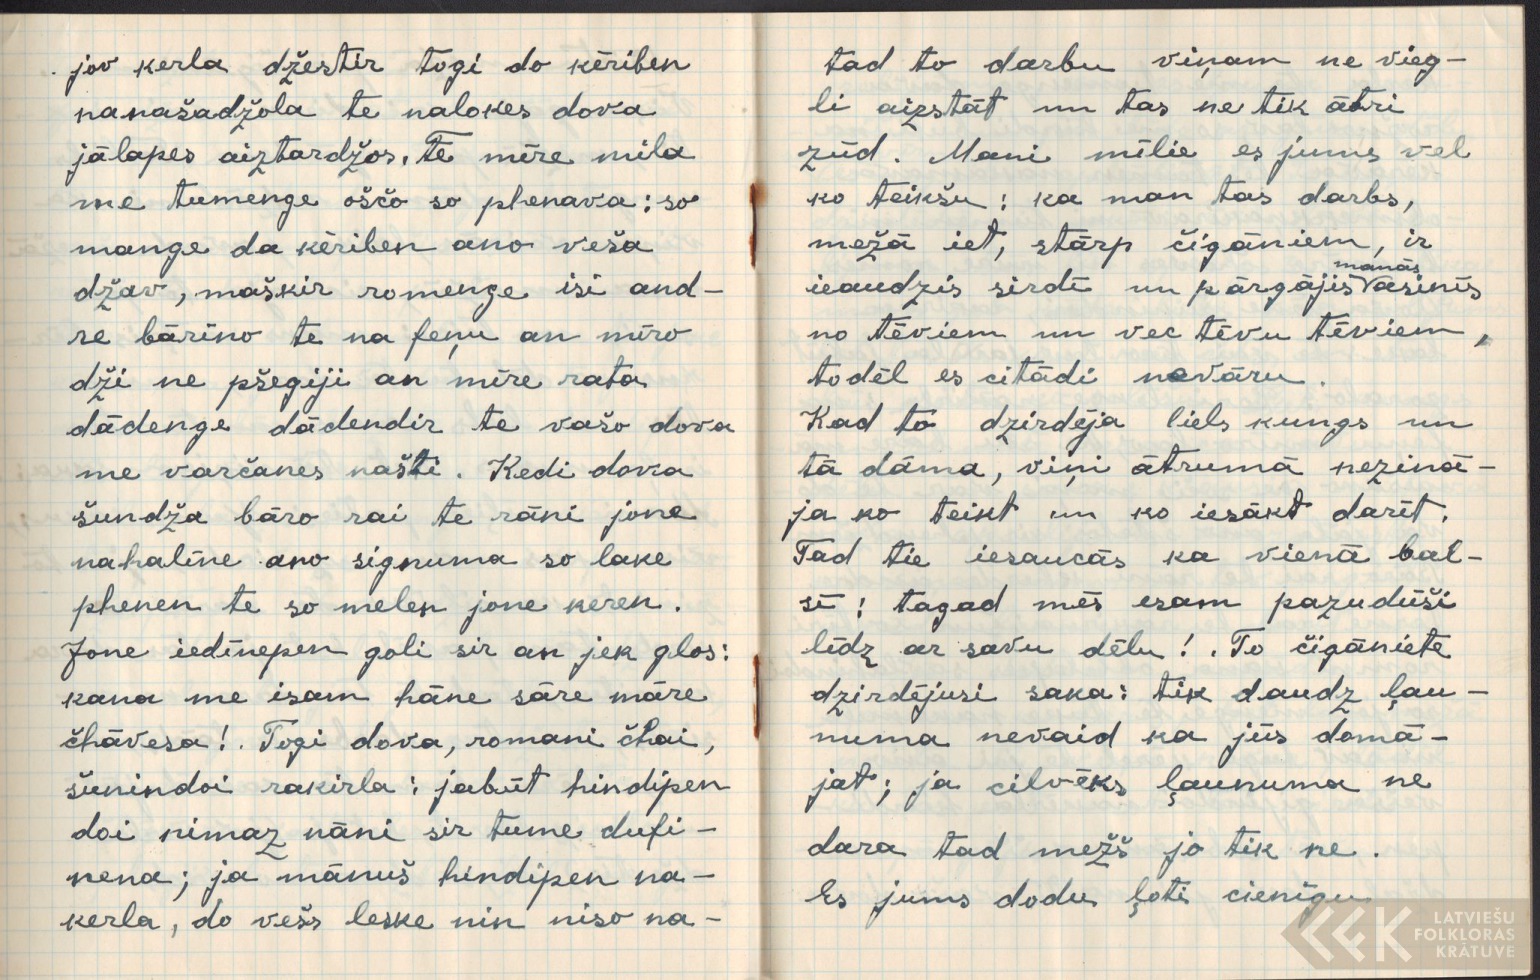 jov kerla džestir togi do kēriben
nanašadžola te nalokes dova
jālapes aiztardžos. Te mīre mila
me tumenge oščo so phenava: so
mange da kēriben ano veša
džav, maškir romenge isi and-
re bārīno te na feņu an mīro
dži ne pšegiji an mīre rata
dādenge dādendir te vašo dova
me varčanes našti. Kedi dova
šundža bāro rai te rāni jone
nahalīne ano signuma so lake
phenen te so melen jone keren.
Jone iedīnepen goli sir an jek glos:
kana me isam hāne sāre māre
čhāvesa!. Togi dova, romani čhai,
šunindoi rakirla: jabūt hindipen
doi nimaz nāni sir tume dufi-
nena; ja mānuš hindipen na-
kerla, do vešs leske nin niso na-
tad to darbu viņam ne vieg-
li aizstāt un tas ne tik ātri
zūd. Mani mīlie es jums vel
ko teikšu: ka man tas darbs,
mežā iet, stārp čigāniem, ir
manās
ieaudzis sirdī un pārgājis āsinīs
no tēviem un vec tēvu tēviem,
todēl es citādi nevāru.
Kad to dzirdēja liels kungs un
tā dāma, viņi ātrumā nezinā-
ja ko teikt un ko iesākt darīt.
Tad tie iesaucās ka vienā bal-
sī: tagad mēs esam pazuduši
līdz ar savu dēlu!. To čigāniete
dzirdējusi saka: tik daudz ļau-
numa nevaid ka jūs domā-
jat; ja cilvēks ļaunuma ne
dara tad mežš jo tik ne.
Es jums dodu ļoti cienīgu
LATVIEŠU
FOLKLORAS
KRĀTUVE